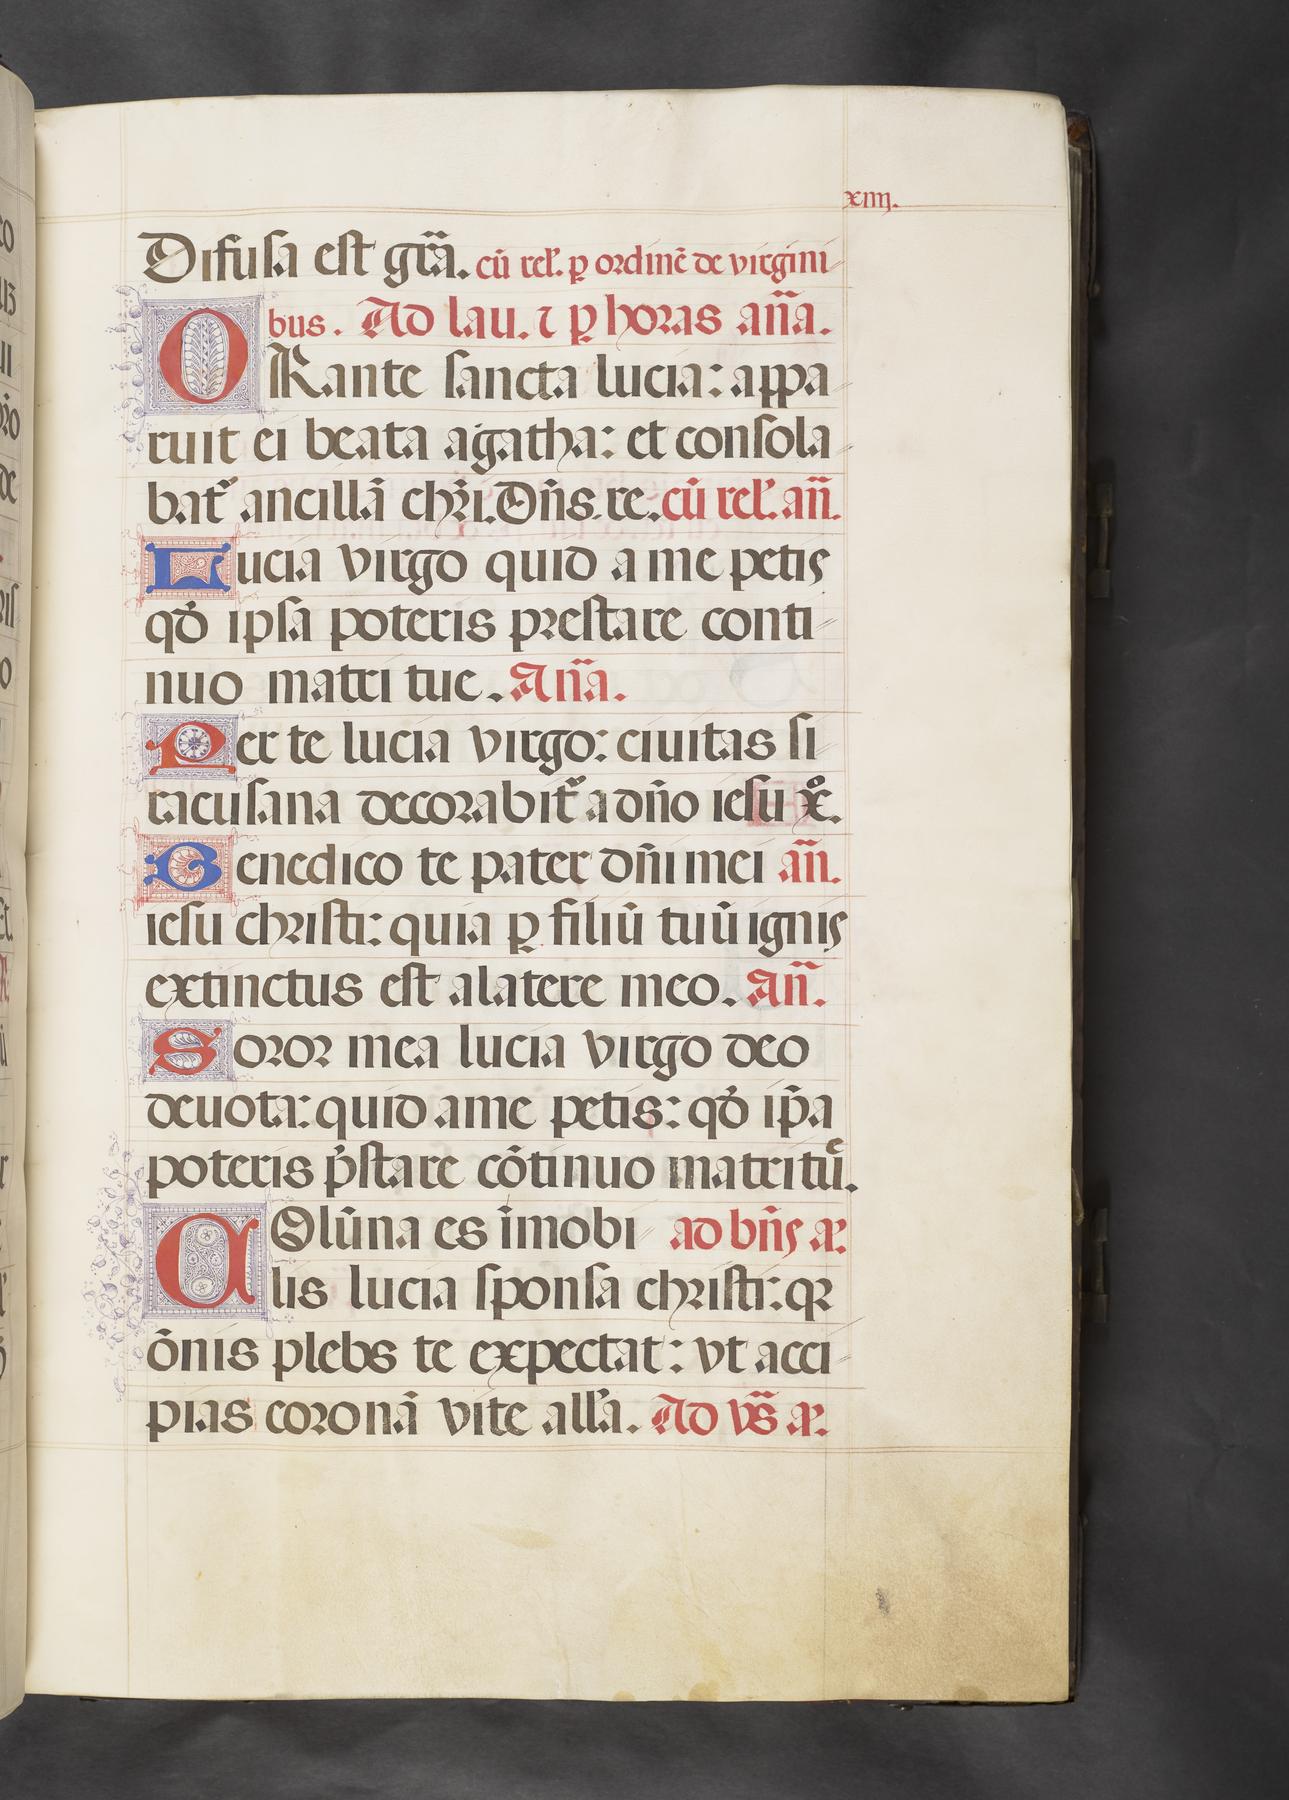 xiiij.
Difusa est gr̃a. cũ rel'. ꝑ ordinẽ de virgini
bus. Ad lau. ⁊ ꝑ horas añã.
ORante sancta lucia: appa
ruit ei beata agatha: et consola
bat᷑ ancillã chr̃i. Dñs. re. cũ rel'. añ.
Lucia virgo quid a me petis
qđ ipsa poteris prestare conti
nuo matri tue. Añã.
Per te lucia virgo: ciuitas si
racusana decorabit᷑ a dño iesu xº.
Benedico te pater dñi mei añ.
iesu christi: quia ꝑ filiũ tuũ ignis
extinctus est a latere meo. Añ.
Soror mea lucia virgo deo
deuota: quid a me petis: qđ ip̃a
poteris p̃stare cõtinuo matri tuẽ.
COlũna es ĩmobi ad bñs aꝛ.
lis lucia sponsa christi: qꝛ
õnis plebs te expectat: vt acci
pias coronã vite all'a. Ad vs̃ aꝛ.